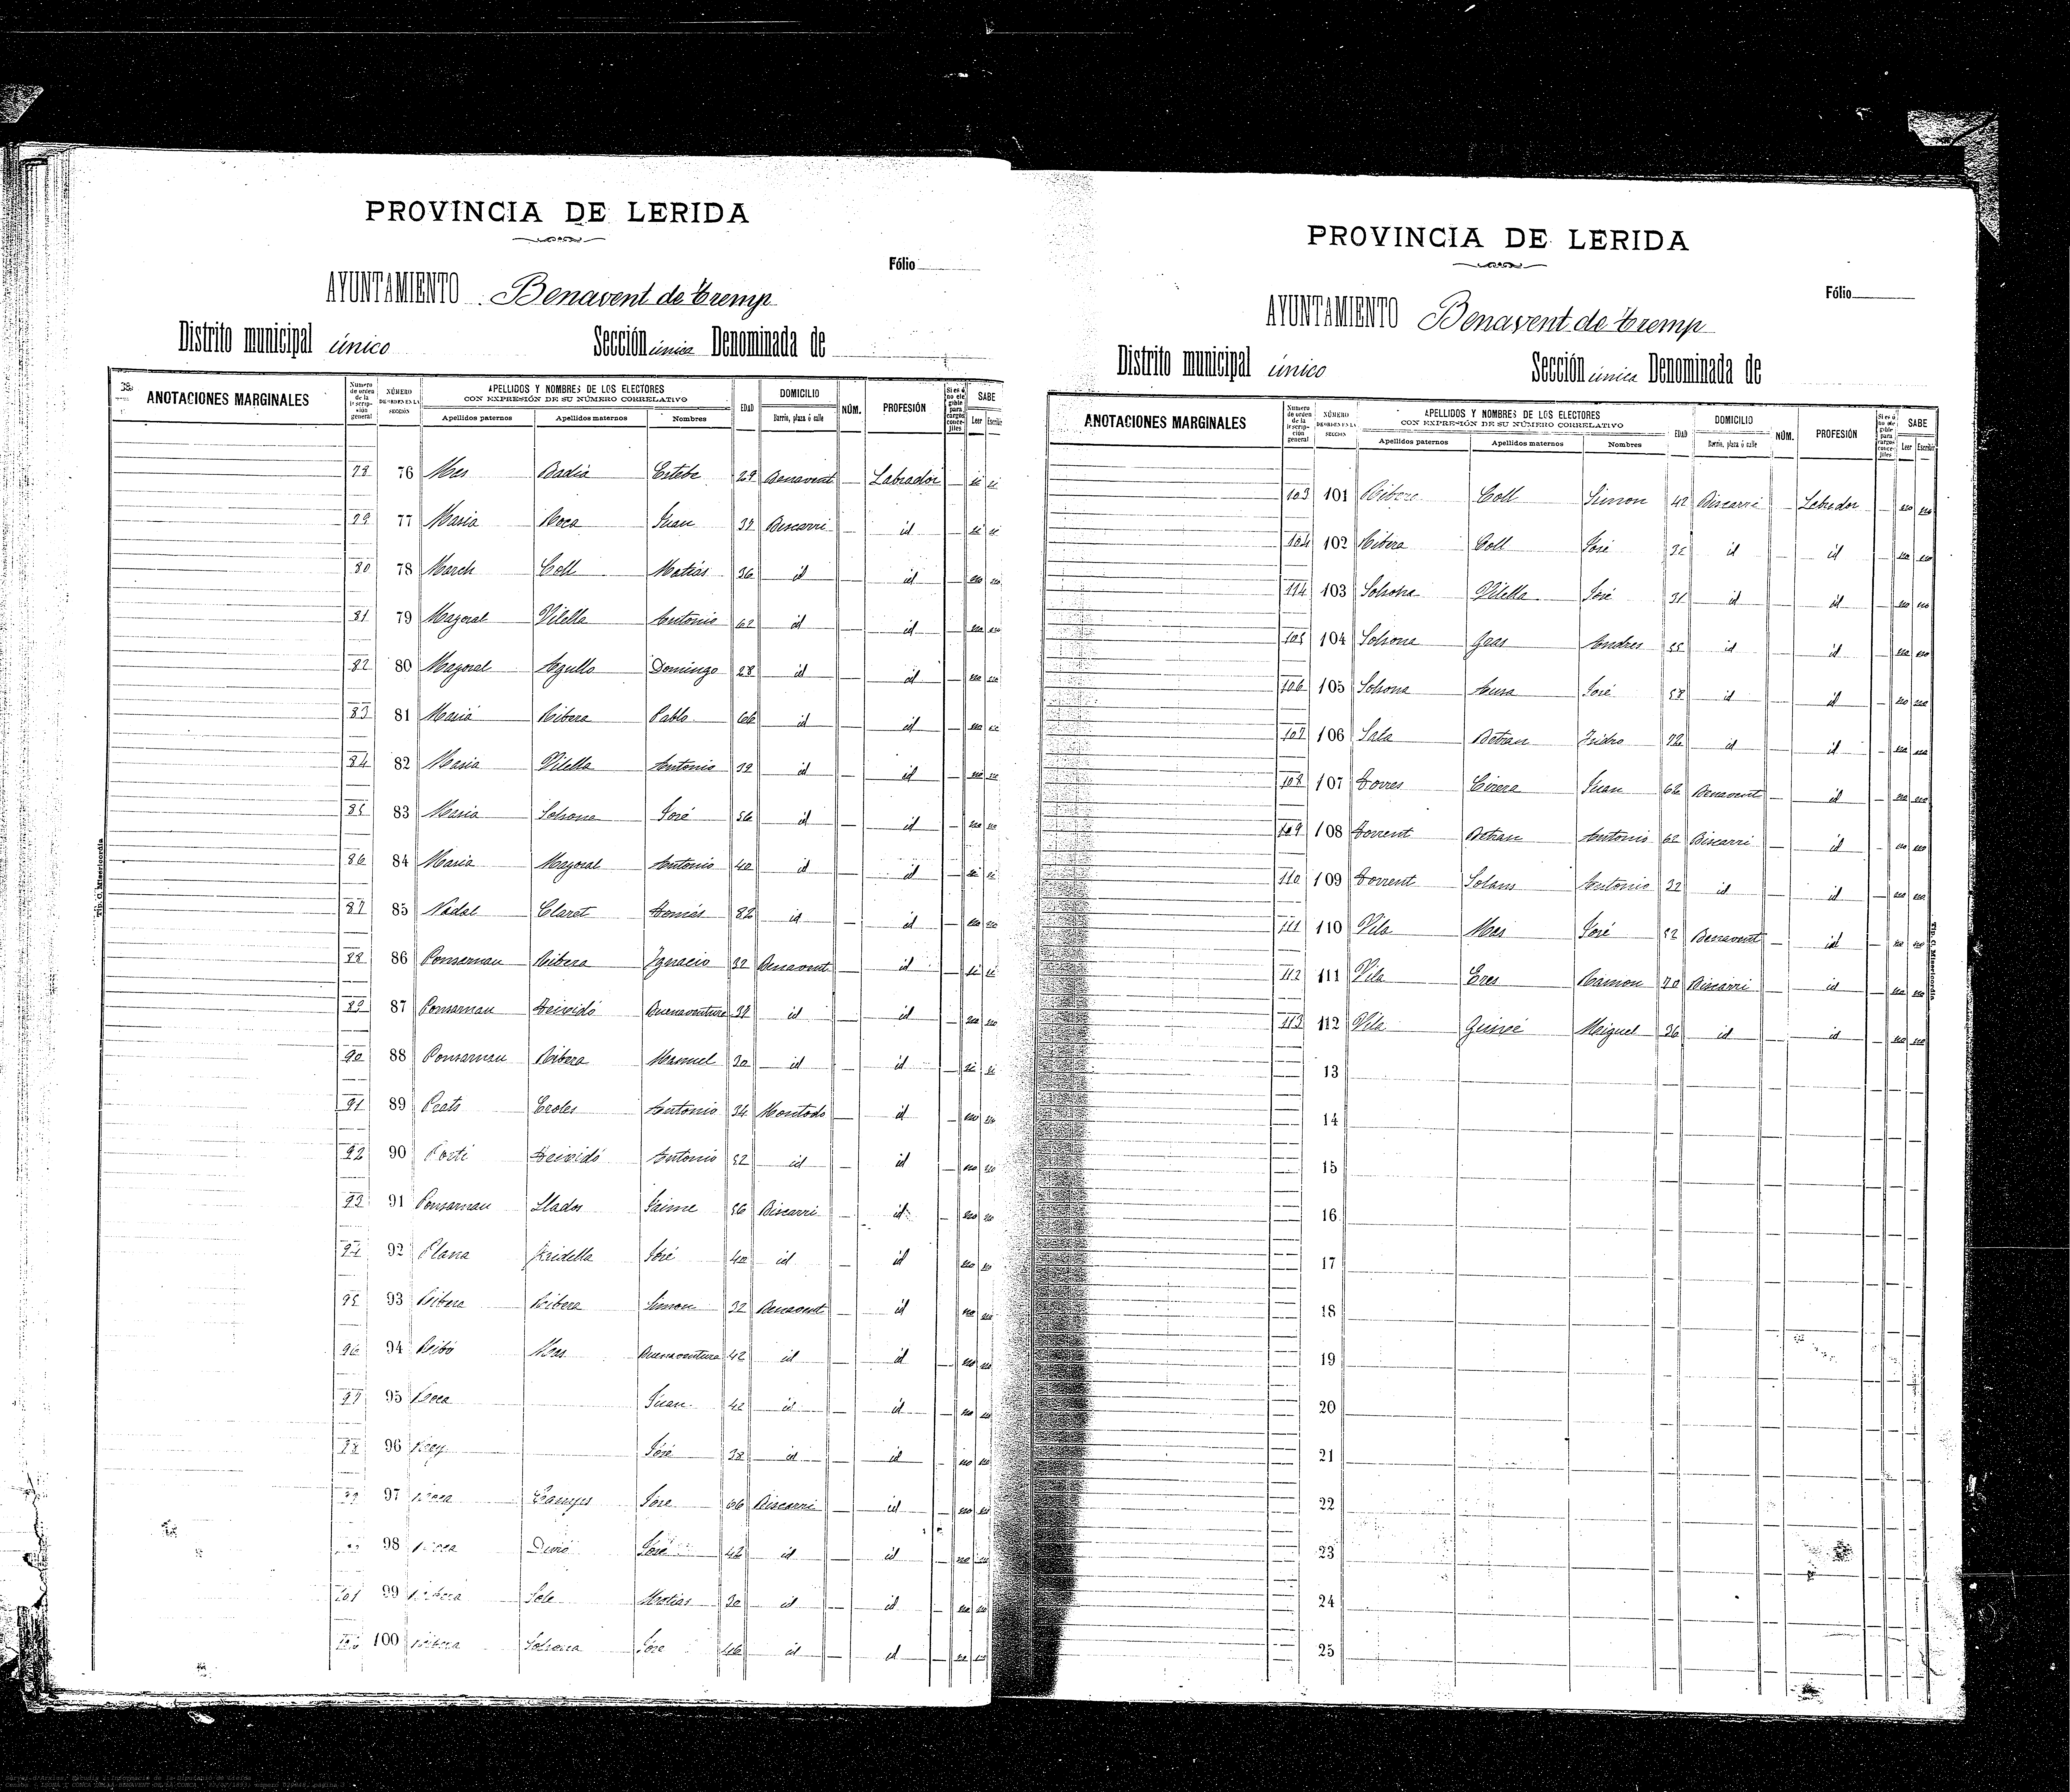 PROVINCIA DE LERIDA
Fólio
AYUNTAMIENTO Benavent de Tremp
Distrito municipal único Sección única Denominada de
ANOTACIONES MARGINALES
Número de orden de la inscripción general NÚMERO DE ORDEN EN LA SECCIÓN APELLIDOS Y NOMBRES DE LOS ELECTORES CON EXPRESIÓN DE SU NÚMERO CORRELATIVO EDAD DOMICILIO NÚM. PROFESIÓN Si es ó no elegible para cargos concejiles SABE
Apellidos paternos Apellidos maternos Nombres Barrio, plaza ó calle Leer Escribir
78 76 Mas Badia Esteba 29 Benavent — Labrador — si si
79 77 Maria Roca Juan 37 Biscarri — id — si si
80 78 March Coll Matias 36 id — id — no no
81 79 Mayoral Vilella Antonio 62 id — id — no no
82 80 Mayoral Agullo Domingo 28 id — id — no no
83 81 Maria Ribera Pablo 66 id — id — no no
84 82 Maria Vilella Antonio 39 id — id — no no
85 83 Maria Solsona José 56 id — id — no no
86 84 Maria Mayoral Antonio 40 id — id — si si
87 85 Nadal Claret Tomás 82 id — id — no no
88 86 Ponsarnau Ribera Ignacio 32 Benavent — id — si si
89 87 Ponsarnau Teixidó Buenaventura 37 id — id — no no
90 88 Ponsarnau Ribera Manuel 30 id — id — si si
91 89 Prats Eroles Antonio 34 Montodo — id — no no
92 90 Porti Teixidó Antonio 52 id — id — no no
93 91 Ponsarnau Llados Jaime 56 Biscarri — id — no no
94 92 Plana Fridella José 40 id — id — no no
95 93 Ribera Ribera Simon 32 Benavent — id — no no
96 94 Ribó Mas Buenaventura 42 id — id — no no
97 95 Roca Juan 42 id — id — no no
98 96 Rey José 38 id — id — no no
99 97 Roca Camps José 66 Biscarri — id — no no
98 Roca José 42 id — id — no no
101 99 Ribera Sole Matias 30 id — id — no no
100 Ribera Solsona José 46 id — id — no no
Tip. C. Misericordia
PROVINCIA DE LERIDA
Fólio
AYUNTAMIENTO Benavent de Tremp
Distrito municipal único Sección única Denominada de
ANOTACIONES MARGINALES
Número de orden de la inscripción general NÚMERO DE ORDEN EN LA SECCIÓN APELLIDOS Y NOMBRES DE LOS ELECTORES CON EXPRESIÓN DE SU NÚMERO CORRELATIVO EDAD DOMICILIO NÚM. PROFESIÓN Si es ó no elegible para cargos concejiles SABE
Apellidos paternos Apellidos maternos Nombres Barrio, plaza ó calle Leer Escribir
103 101 Ribera Coll Simon 42 Biscarri — Labrador — no no
104 102 Ribera Coll José 32 id — id — no no
114 103 Solsona Vilella José 31 id — id — no no
105 104 Solsona Gras Andres 55 id — id — no no
106 105 Solsona Aura José 58 id — id — no no
107 106 Sala Betran Isidro 72 id — id — no no
108 107 Torres Cirera Juan 62 Benavent — id — no no
109 108 Torrent Betran Antonio 62 Biscarri — id — no no
110 109 Torrent Solans Antonio 32 id — id — no no
111 110 Vila Mas José 52 Benavent — id — no no
112 111 Vila Eres Ramon 70 Biscarri — id — no no
113 112 Vila Guinié Miguel 36 id — id — no no
13
14
15
16
17
18
19
20
21
22
23
24
25
Tip. C. Misericordia